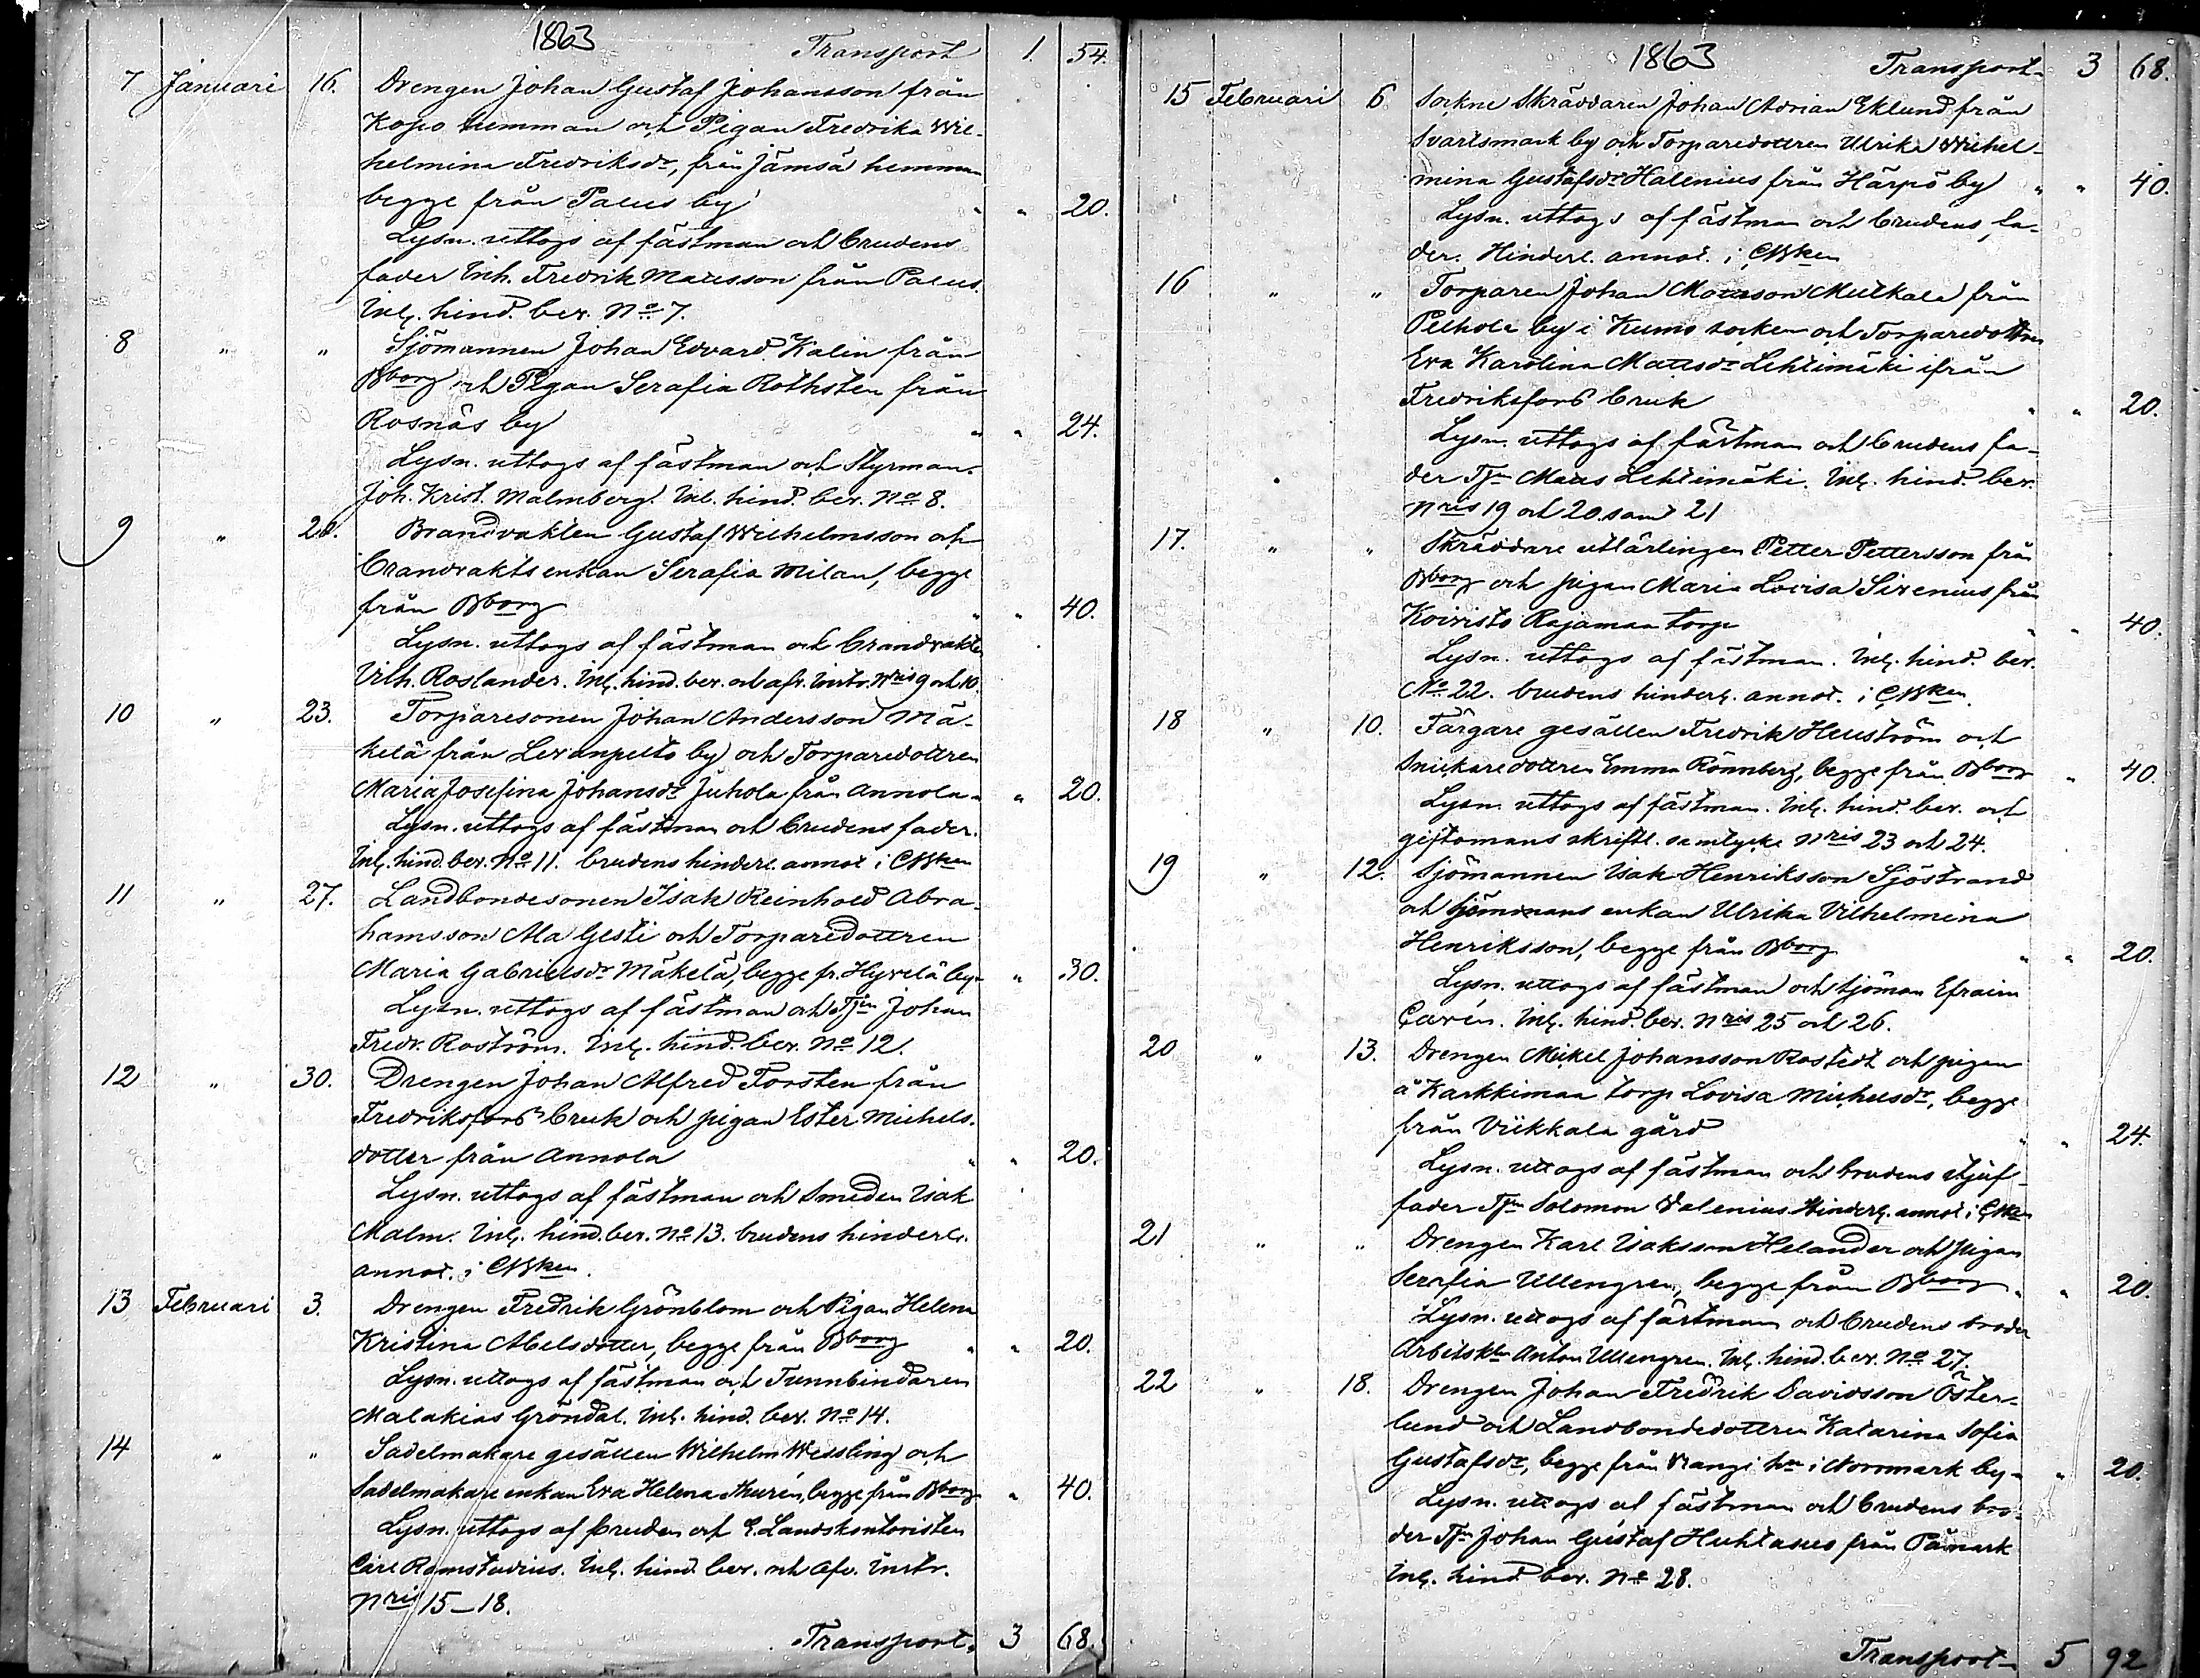 1863
Transport 1. 54.
7 Januari 16. Drengen Johan Gustaf Johansson från
Kopo hemman och Pigan Fredrika Wil-
helmina Fredriksdr, från Jämsä hemman
begge från Påmark by " " 20.
Lysn. uttogs af fästman och brudens
fader Inh. Fredrik Matsson från
Inl. hind. bev. No 7.
8 " " Sjömannen Johan Edvard Kalin från
Bborg och Pigan Serafia Rothsten från
Rosnäs by " " 24.
Lysn. uttogs af fästman och Styrman
Joh. Krist. Malmberg. Inl. hind. bev. No 8.
9 " 20. Brandvakten Gustaf Wilhelmsson och
brandvaktsenkan Serafia Milan, begge
från Bborg " " 40.
Lysn. uttogs af fästman och brandvakten
Vilh. Roslander. Inl. hind. bev. och afv. instr. Nris 9 och 10.
10 " 23. Torparesonen Johan Andersson Mä-
kelä från Levanpelto by och Torparedottren
Maria Josefina Johansdr Juhola från Annola " " 20.
Lysn. uttogs af fästman och brudens fader.
Inl. hind. bev. No 11. brudens hinderl. annot. i CMBken
11 " 27. Landbondesonen Isak Reinhold Abra-
hamsson Ala Gesti och Torparedottren
Maria Gabrielsdr Mäkelä, begge fr. Hyvelä by " " 30.
Lysn. uttogs af fästman och Tjn Johan
Fredr. Roström. Inl. hind. bev. No 12.
12 " 30. Drengen Johan Alfred Forsten från
Fredriksfors bruk och pigan Ester Michels-
dotter från Annola " " 20.
Lysn. uttogs af fästman och Smeden Isak
Malm. Inl. hind. bev. No 13. brudens hinderl.
annot. i CMBken.
13 Februari 3. Drengen Fredrik Grönblom och Pigan Helena
Kristina Abelsdotter, begge från Bborg " " 20.
Lysn. uttogs af fästman och Tunnbindaren
Malakias Gröndal. Inl. hind. bev. No 14.
14 " " Sadelmakare gesällen Wilhelm Wessling och
Sadelmakare enkan Eva Helena Thurén, begge från Bborg " 40.
Lysn. uttogs af bruden och E. Landskontoristen
Carl Ramstadius. Inl. hind. bev. och Afv. instr.
Nris 15–18.
Transport 3 68.
1863
Transport 3 68.
15 Februari 6 Sockne Skräddaren Johan Adrian Eklund från
Svartsmark by och Torparedottren Ulrika Wilhel-
mina Gustafsdr Halenius från Härpö by " " 40.
Lysn. uttogs af fästman och brudens fa-
der. Hinderl. annot. i CMBken
16 " " Torparen Johan Matsson Mulkala från
Peltola by i Kumo socken och Torparedottren
Eva Karolina Mattsdr Lehtimäki ifrån
Fredriksfors bruk " " 20.
Lysn. uttogs af fästman och brudens fa-
der Tjn Matts Lehtimäki. Inl. hind. bev.
Nris 19 och 20 samt 21
17. " " Skräddare utlärlingen Petter Pettersson från
Bborg och pigan Maria Lovisa Sirenius från
Koivisto Rajamaa torp " " 40.
Lysn. uttogs af fästman. Inl. hind. bev.
No 22. brudens hinderl. annot. i CMBken.
18 " 10. Färgare gesällen Fredrik Hellström och
Snickaredottren Emma Rönnberg, begge från Bborg " 40.
Lysn. uttogs af fästman. Inl. hind. bev. och
giftomans skriftl. samtycke Nris 23 och 24.
19 " 12. Sjömannen Isak Henriksson Sjöstrand
och Sjömans enkan Ulrika Vilhelmina
Henriksson, begge från Bborg " " 20.
Lysn. uttogs af fästman och Sjöman Efraim
Carén. Inl. hind. bev. Nris 25 och 26.
20 " 13. Drengen Mickel Johansson Rostedt och pigan
å Karkkimaa torp Lovisa Michelsdr, begge
från Viikkala gård " " 24.
Lysn. uttogs af fästman och brudens styf-
fader Tjn Salomon Valenius. Hinderl. annot. i CMBken
21 " " Drengen Karl Isaksson Helander och pigan
Serafia Ullengren, begge från Bborg " " 20.
Lysn. uttogs af fästman och brudens broder
Arbetskln Anton Ullengren. Inl. hind. bev. No 27.
22 " 18. Drengen Johan Fredrik Davidsson Öster-
lund och Landbondedottren Katarina Sofia
Gustafsdr, begge från Wangi hn i Norrmark by " " 20.
Lysn. uttogs af fästman och brudens bro-
der Tjn Johan Gustaf Huhtanus från Påmark
Inl. hind. bev. No 28.
Transport 5 92